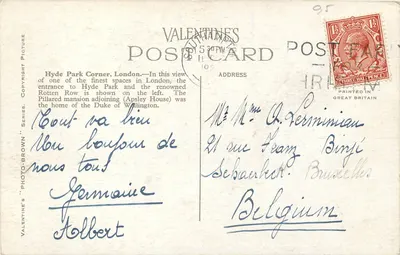 95
VALENTINES
POST CARD
Hyde Park Corner, London.—In this view
of one of the finest spaces in London, the
entrance to Hyde Park and the renowned
Rotten Row is shown on the left. The
Pillared mansion adjoining (Apsley House) was
the home of the Duke of Wellington.
ADDRESS
PRINTED IN
GREAT BRITAIN
POST E
VALENTINE'S "PHOTO-BROWN" SERIES. COPYRIGHT PICTURE
Tout va bien
Un bonjour de
nous tous
Germaine
Albert
Mr Mme A.
21 rue Franz Binjé
Schaerbeek Bruxelles
Belgium